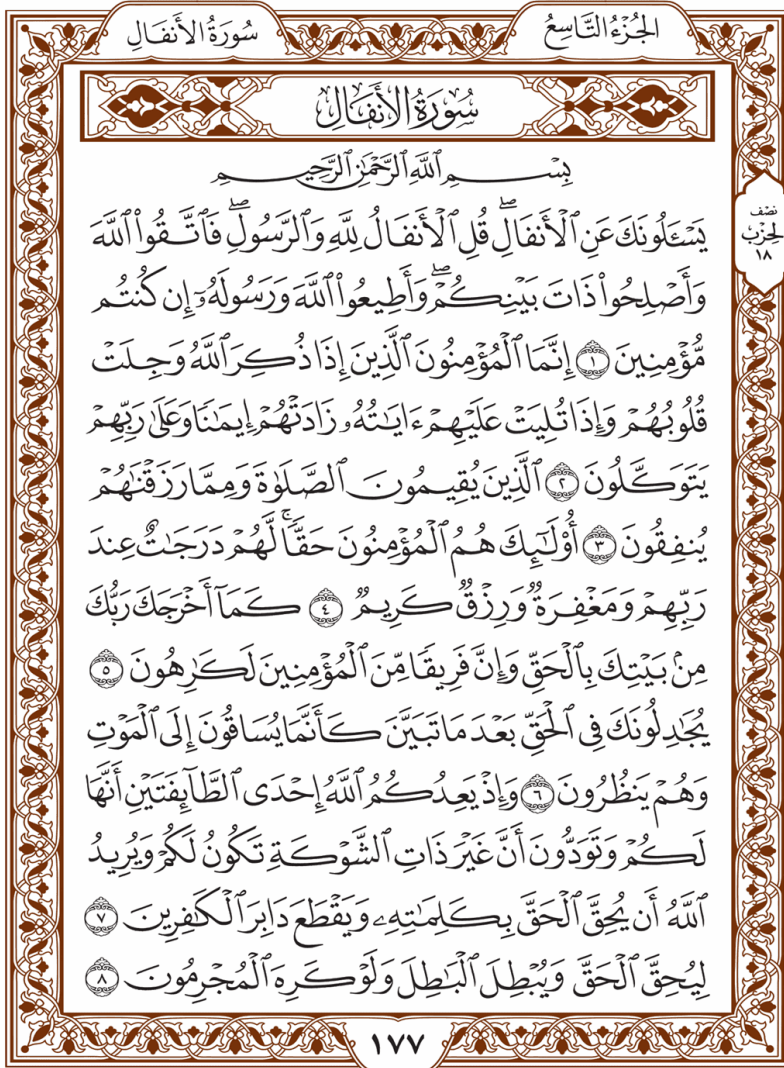 الجُزْءُ التَّاسِعُ
سُورَةُ الأَنفَالِ
سُورَةُ الأَنفَالِ
بِسْمِ ٱللَّهِ ٱلرَّحْمَٰنِ ٱلرَّحِيمِ
يَسْـَٔلُونَكَ عَنِ ٱلْأَنفَالِۖ قُلِ ٱلْأَنفَالُ لِلَّهِ وَٱلرَّسُولِۖ فَٱتَّقُوا۟ ٱللَّهَ
وَأَصْلِحُوا۟ ذَاتَ بَيْنِكُمْۖ وَأَطِيعُوا۟ ٱللَّهَ وَرَسُولَهُۥٓ إِن كُنتُم
مُّؤْمِنِينَ ١ إِنَّمَا ٱلْمُؤْمِنُونَ ٱلَّذِينَ إِذَا ذُكِرَ ٱللَّهُ وَجِلَتْ
قُلُوبُهُمْ وَإِذَا تُلِيَتْ عَلَيْهِمْ ءَايَٰتُهُۥ زَادَتْهُمْ إِيمَٰنًا وَعَلَىٰ رَبِّهِمْ
يَتَوَكَّلُونَ ٢ ٱلَّذِينَ يُقِيمُونَ ٱلصَّلَوٰةَ وَمِمَّا رَزَقْنَٰهُمْ
يُنفِقُونَ ٣ أُو۟لَٰٓئِكَ هُمُ ٱلْمُؤْمِنُونَ حَقًّاۚ لَّهُمْ دَرَجَٰتٌ عِندَ
رَبِّهِمْ وَمَغْفِرَةٌ وَرِزْقٌ كَرِيمٌ ٤ كَمَآ أَخْرَجَكَ رَبُّكَ
مِنۢ بَيْتِكَ بِٱلْحَقِّ وَإِنَّ فَرِيقًا مِّنَ ٱلْمُؤْمِنِينَ لَكَٰرِهُونَ ٥
يُجَٰدِلُونَكَ فِى ٱلْحَقِّ بَعْدَ مَا تَبَيَّنَ كَأَنَّمَا يُسَاقُونَ إِلَى ٱلْمَوْتِ
وَهُمْ يَنظُرُونَ ٦ وَإِذْ يَعِدُكُمُ ٱللَّهُ إِحْدَى ٱلطَّآئِفَتَيْنِ أَنَّهَا
لَكُمْ وَتَوَدُّونَ أَنَّ غَيْرَ ذَاتِ ٱلشَّوْكَةِ تَكُونُ لَكُمْ وَيُرِيدُ
ٱللَّهُ أَن يُحِقَّ ٱلْحَقَّ بِكَلِمَٰتِهِۦ وَيَقْطَعَ دَابِرَ ٱلْكَٰفِرِينَ ٧
لِيُحِقَّ ٱلْحَقَّ وَيُبْطِلَ ٱلْبَٰطِلَ وَلَوْ كَرِهَ ٱلْمُجْرِمُونَ ٨
نِصْف
الحِزْب
١٨
١٧٧